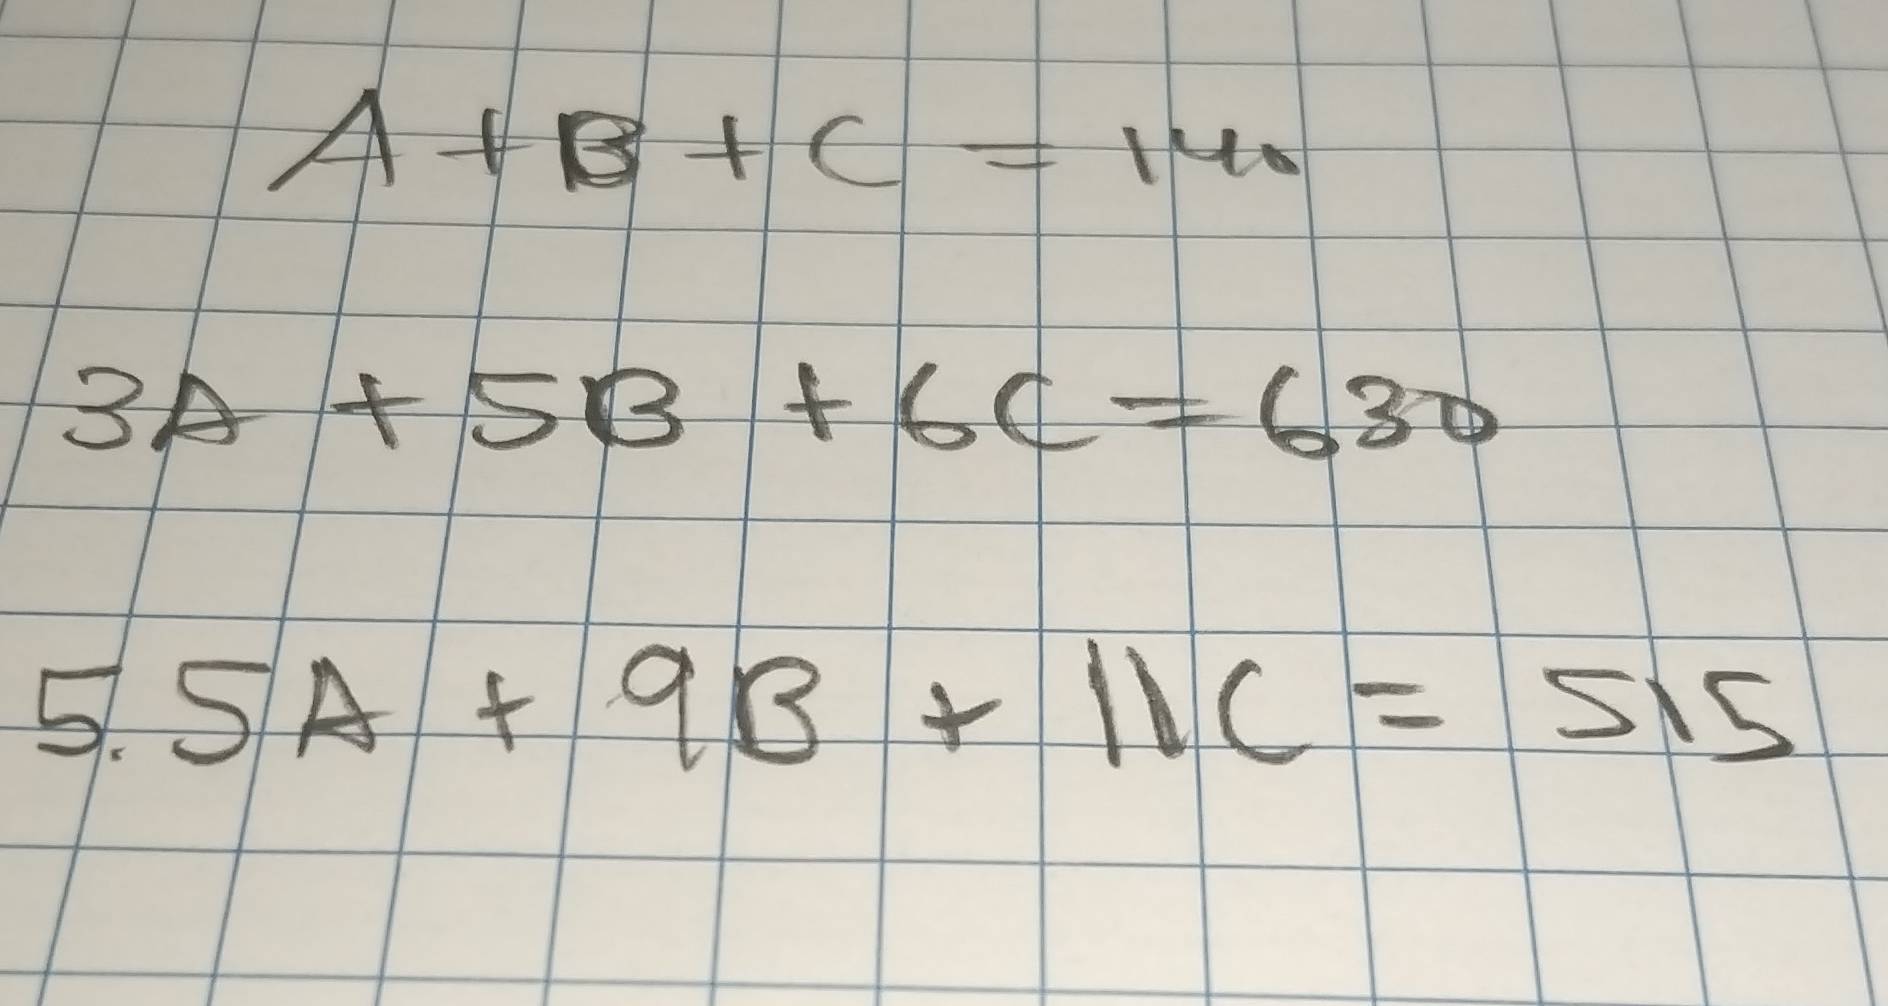 A + B + C = 140
3A + 5B + 6C = 630
5.5A + 9B + 11C = 515